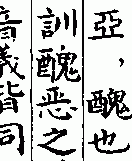 亞，醜也
訓醜惡之
音義皆同